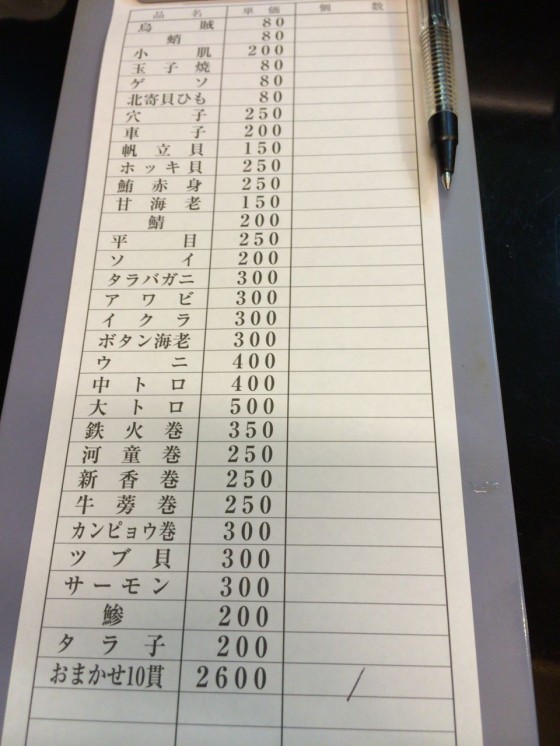 品名 単価 個数
烏賊 80
蛸 80
小肌 200
玉子焼 80
ゲソ 80
北寄貝ひも 80
穴子 250
車子 200
帆立貝 150
ホッキ貝 250
鮪赤身 250
甘海老 150
鯖 200
平目 250
ソイ 200
タラバガニ 300
アワビ 300
イクラ 300
ボタン海老 300
ウニ 400
中トロ 400
大トロ 500
鉄火巻 350
河童巻 250
新香巻 250
牛蒡巻 250
カンピョウ巻 300
ツブ貝 300
サーモン 300
鯵 200
タラ子 200
おまかせ10貫 2600 /